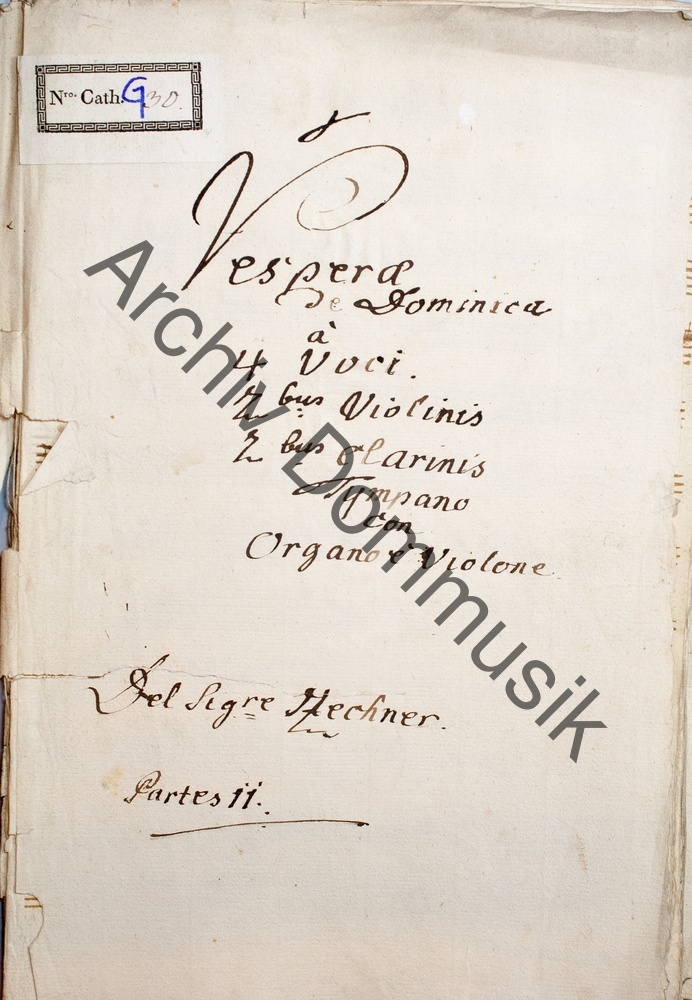 Nro. Cath. G 30.
Vesperæ
De Dominica
à
4 Voci.
2 bus Violinis
2 bus Clarinis
Tympano
con
Organo è Violone
Del Sigre Hechner.
Partes 11.
Archiv Dommusik